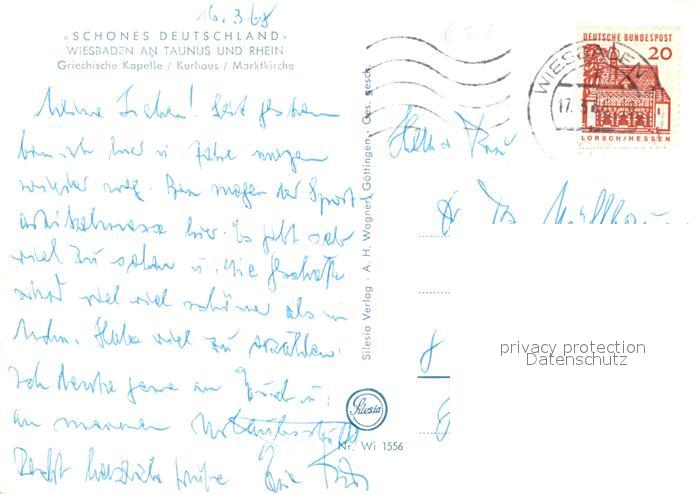 16.3.68
»SCHÖNES DEUTSCHLAND«
WIESBADEN AN TAUNUS UND RHEIN
Griechische Kapelle / Kurhaus / Marktkirche
Meine Lieben! Seit gestern
bin ich hier u. fahre morgen
wieder weg. Bin wegen der Sport-
artikelmesse hier. Es gibt sehr
viel zu sehen u. die Geschäfte
sind viel viel schöner als in
Habe viel zu erzählen.
Ich denke gerne an Euch u.
an
Recht herzliche Grüße
Silesia Verlag · A. H. Wagner, Göttingen · Ges. gesch.
Silesia
Nr. Wi 1556
DEUTSCHE BUNDESPOST
20
LORSCH/HESSEN
WIESBADEN
17.
Herr Frau
Dr
privacy protection
Datenschutz